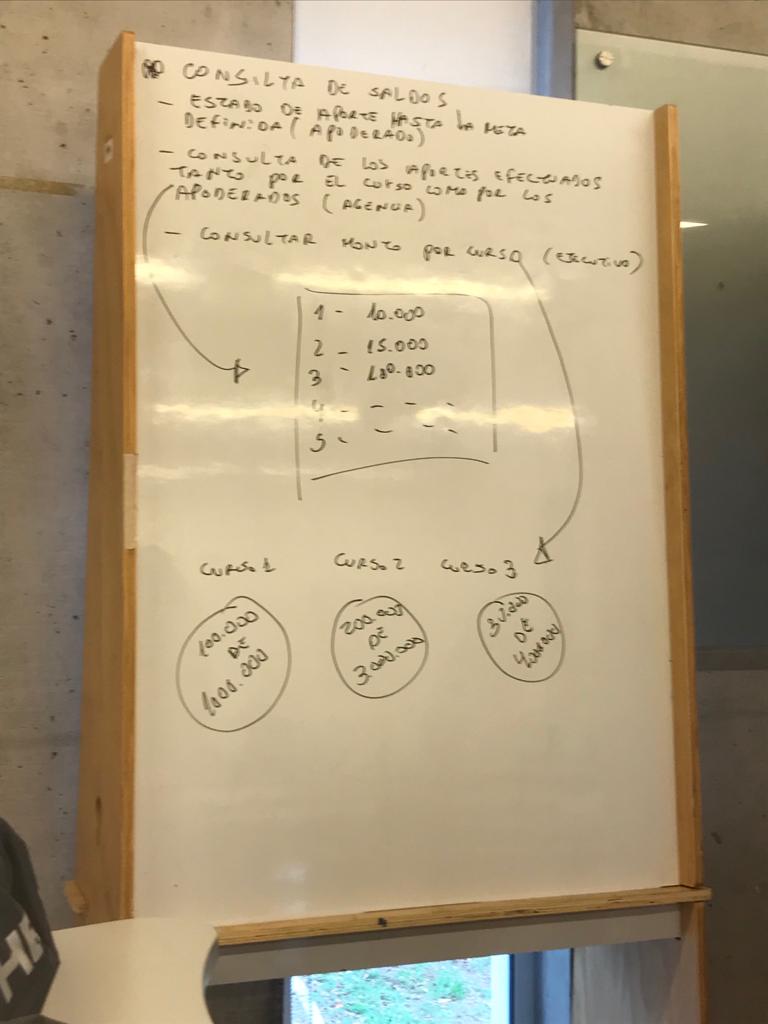 CONSULTA DE SALDOS
- ESTADO DE APORTE HASTA LA META
DEFINIDA (APODERADO)
- CONSULTA DE LOS APORTES EFECTUADOS
TANTO POR EL CURSO COMO POR LOS
APODERADOS (AGENCIA)
- CONSULTAR MONTO POR CURSO (EJECUTIVO)
1 - 10.000
2 - 15.000
3 - 100.000
4 - - - -
5 - - - -
CURSO 1 CURSO 2 CURSO 3
100.000
DE
1000.000
200.000
DE
3.000.000
DE
HE